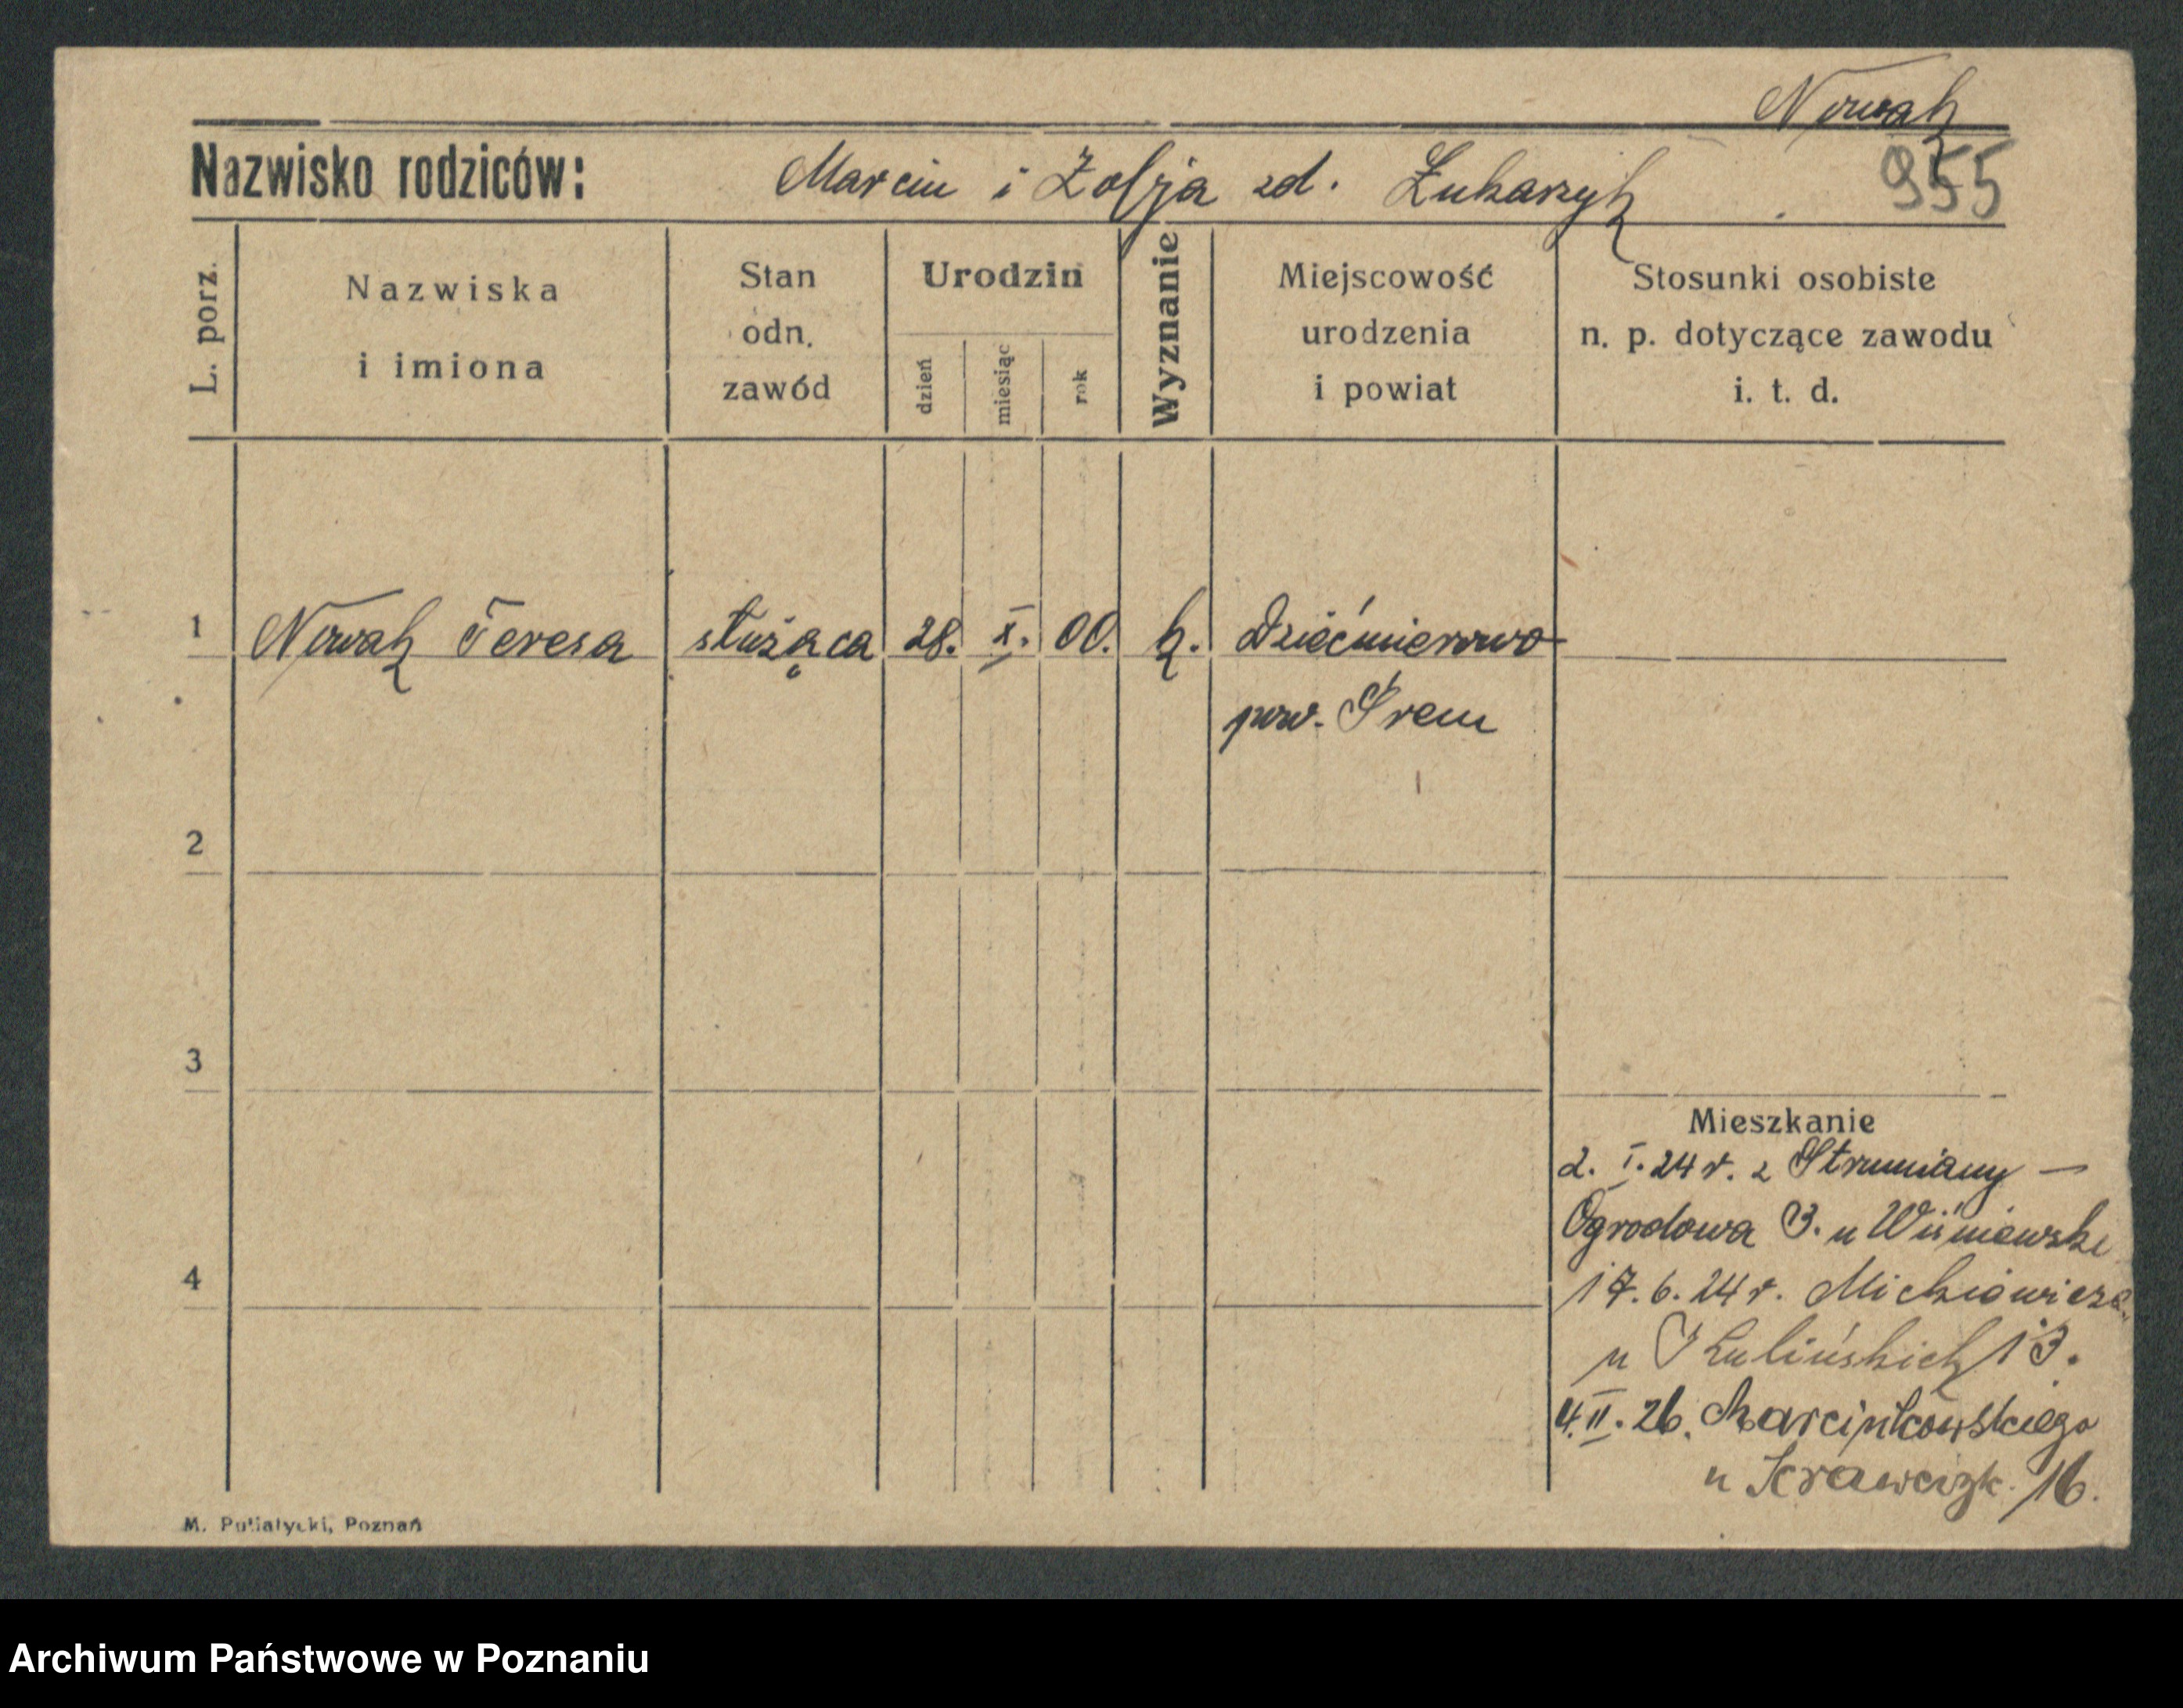 Nowak
Nazwisko rodziców: Marcin i Zofja zd. Łukarzyk
955
L. porz.
Nazwiska
i imiona
Stan
odn.
zawód
Urodzin
dzień
miesiąc
rok
Wyznanie
Miejscowość
urodzenia
i powiat
Stosunki osobiste
n. p. dotyczące zawodu
i. t. d.
1 Nowak Teresa służąca 28. X. 00. k. Dziećmierowo
pow. Śrem
2
3
Mieszkanie
2. I. 24 r. z Strumiany —
Ogrodowa 3. u Wiśniewski
4
17. 6. 24 r. Mickiewicza
u 13.
4. II. 26. Marcinkowskiego
u Krawczyk. 16.
M. Putiatycki, Poznań
Archiwum Państwowe w Poznaniu